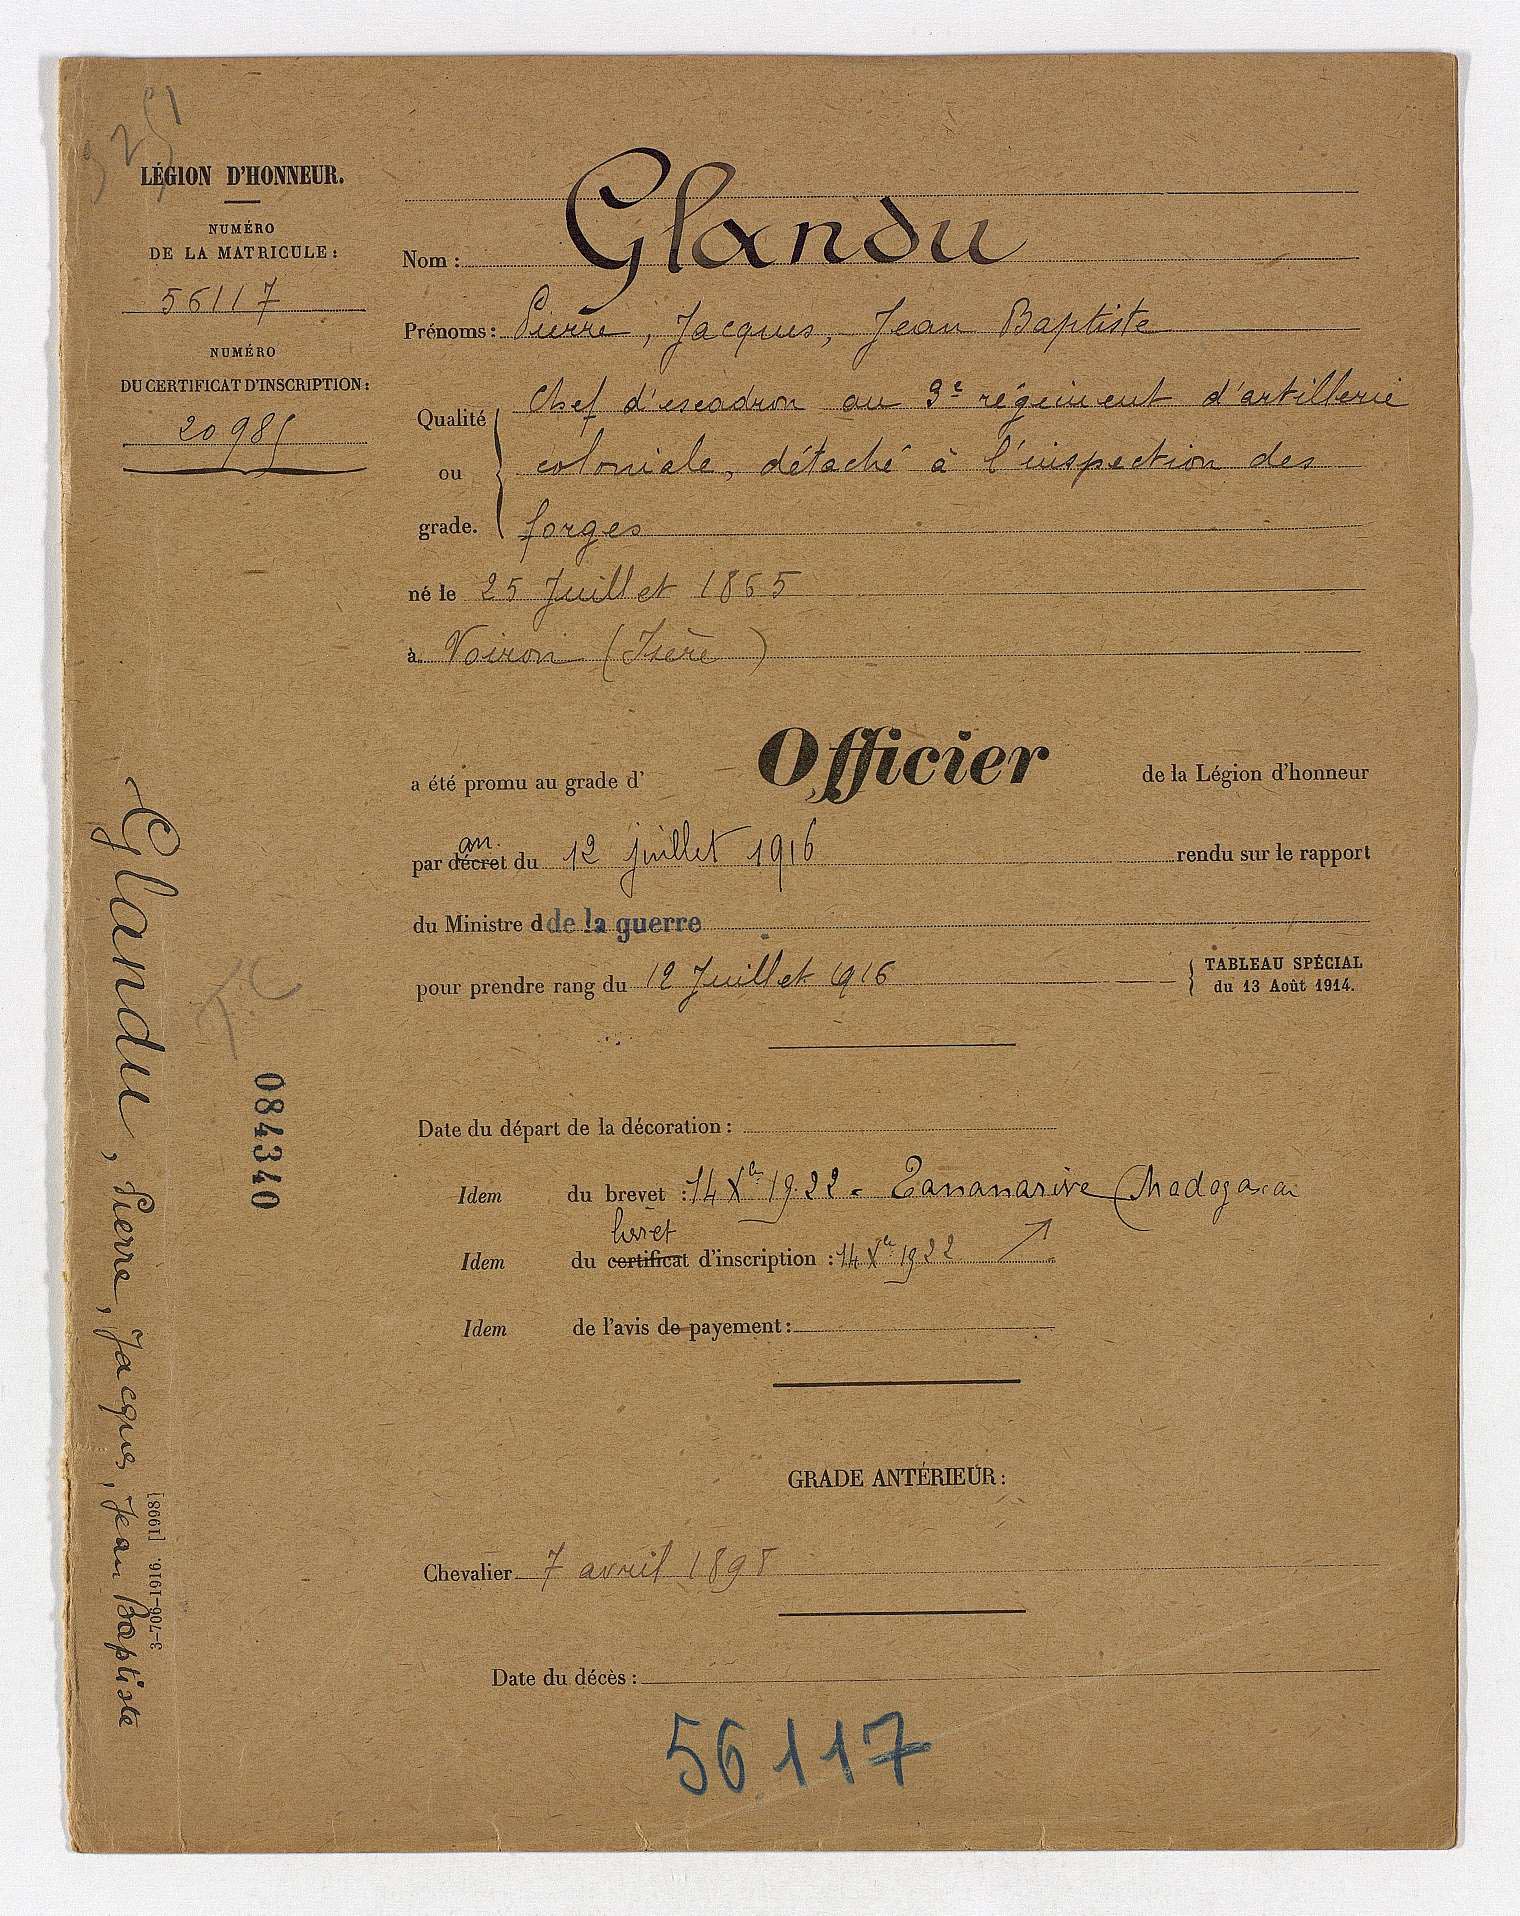 LÉGION D'HONNEUR.
NUMÉRO
DE LA MATRICULE :
56117
NUMÉRO
DU CERTIFICAT D'INSCRIPTION :
20985
Nom : Glandu
Prénoms : Pierre, Jacques, Jean Baptiste
Qualité ou grade. Chef d'escadron au 3e régiment d'artillerie
coloniale, détaché à l'inspection des
forges
né le 25 Juillet 1865
à Voiron (Isère)
a été promu au grade d' Officier de la Légion d'honneur
an.
par décret du 12 juillet 1916 rendu sur le rapport
du Ministre d de la guerre
pour prendre rang du 12 Juillet 1916
TABLEAU SPÉCIAL
du 13 Août 1914.
Date du départ de la décoration :
Idem du brevet : 14 Xbre 1922 - Tananarive (Madagascar
livret
Idem du certificat d'inscription : 14 Xbre 1922
Idem de l'avis de payement :
GRADE ANTÉRIEUR :
Chevalier 7 avril 1898
Date du décès :
56117
Glandu, Pierre, Jacques, Jean Baptiste
084340
3-706-1916. [1998]